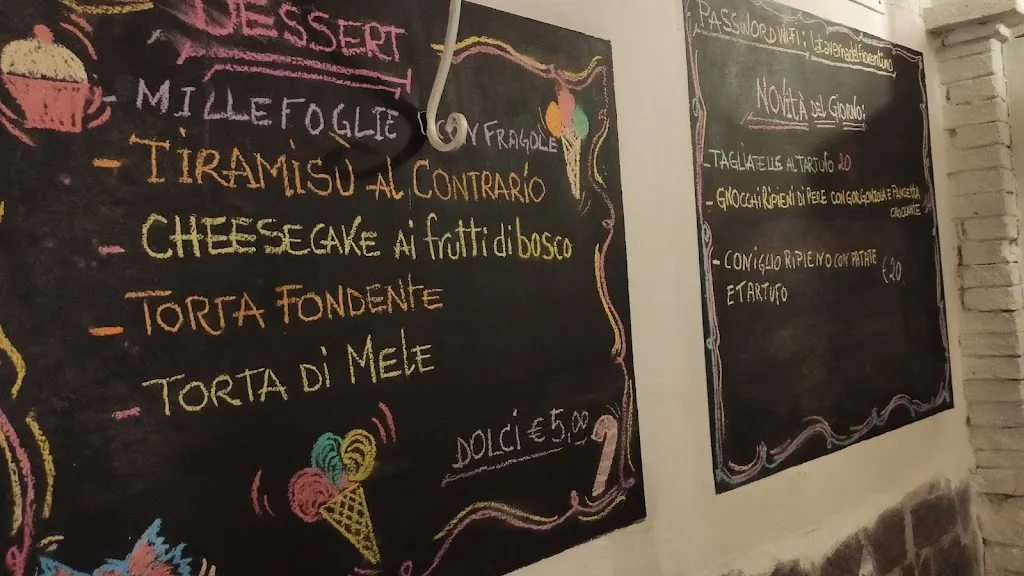 DESSERT
- MILLEFOGLIE CON FRAGOLE
- TIRAMISÙ AL CONTRARIO
- CHEESECAKE AI frutti di bosco
- TORTA FONDENTE
- TORTA DI MELE
DOLCI € 5,00
PASSWORD WIFI:
NOVITÀ DEL GIORNO:
- TAGLIATELLE AL TARTUFO 20
- GNOCCHI RIPIENI DI PERE CON GORGONZOLA E PANCETTA
CROCCANTE
- CONIGLIO RIPIENO CON PATATE
E TARTUFO €20